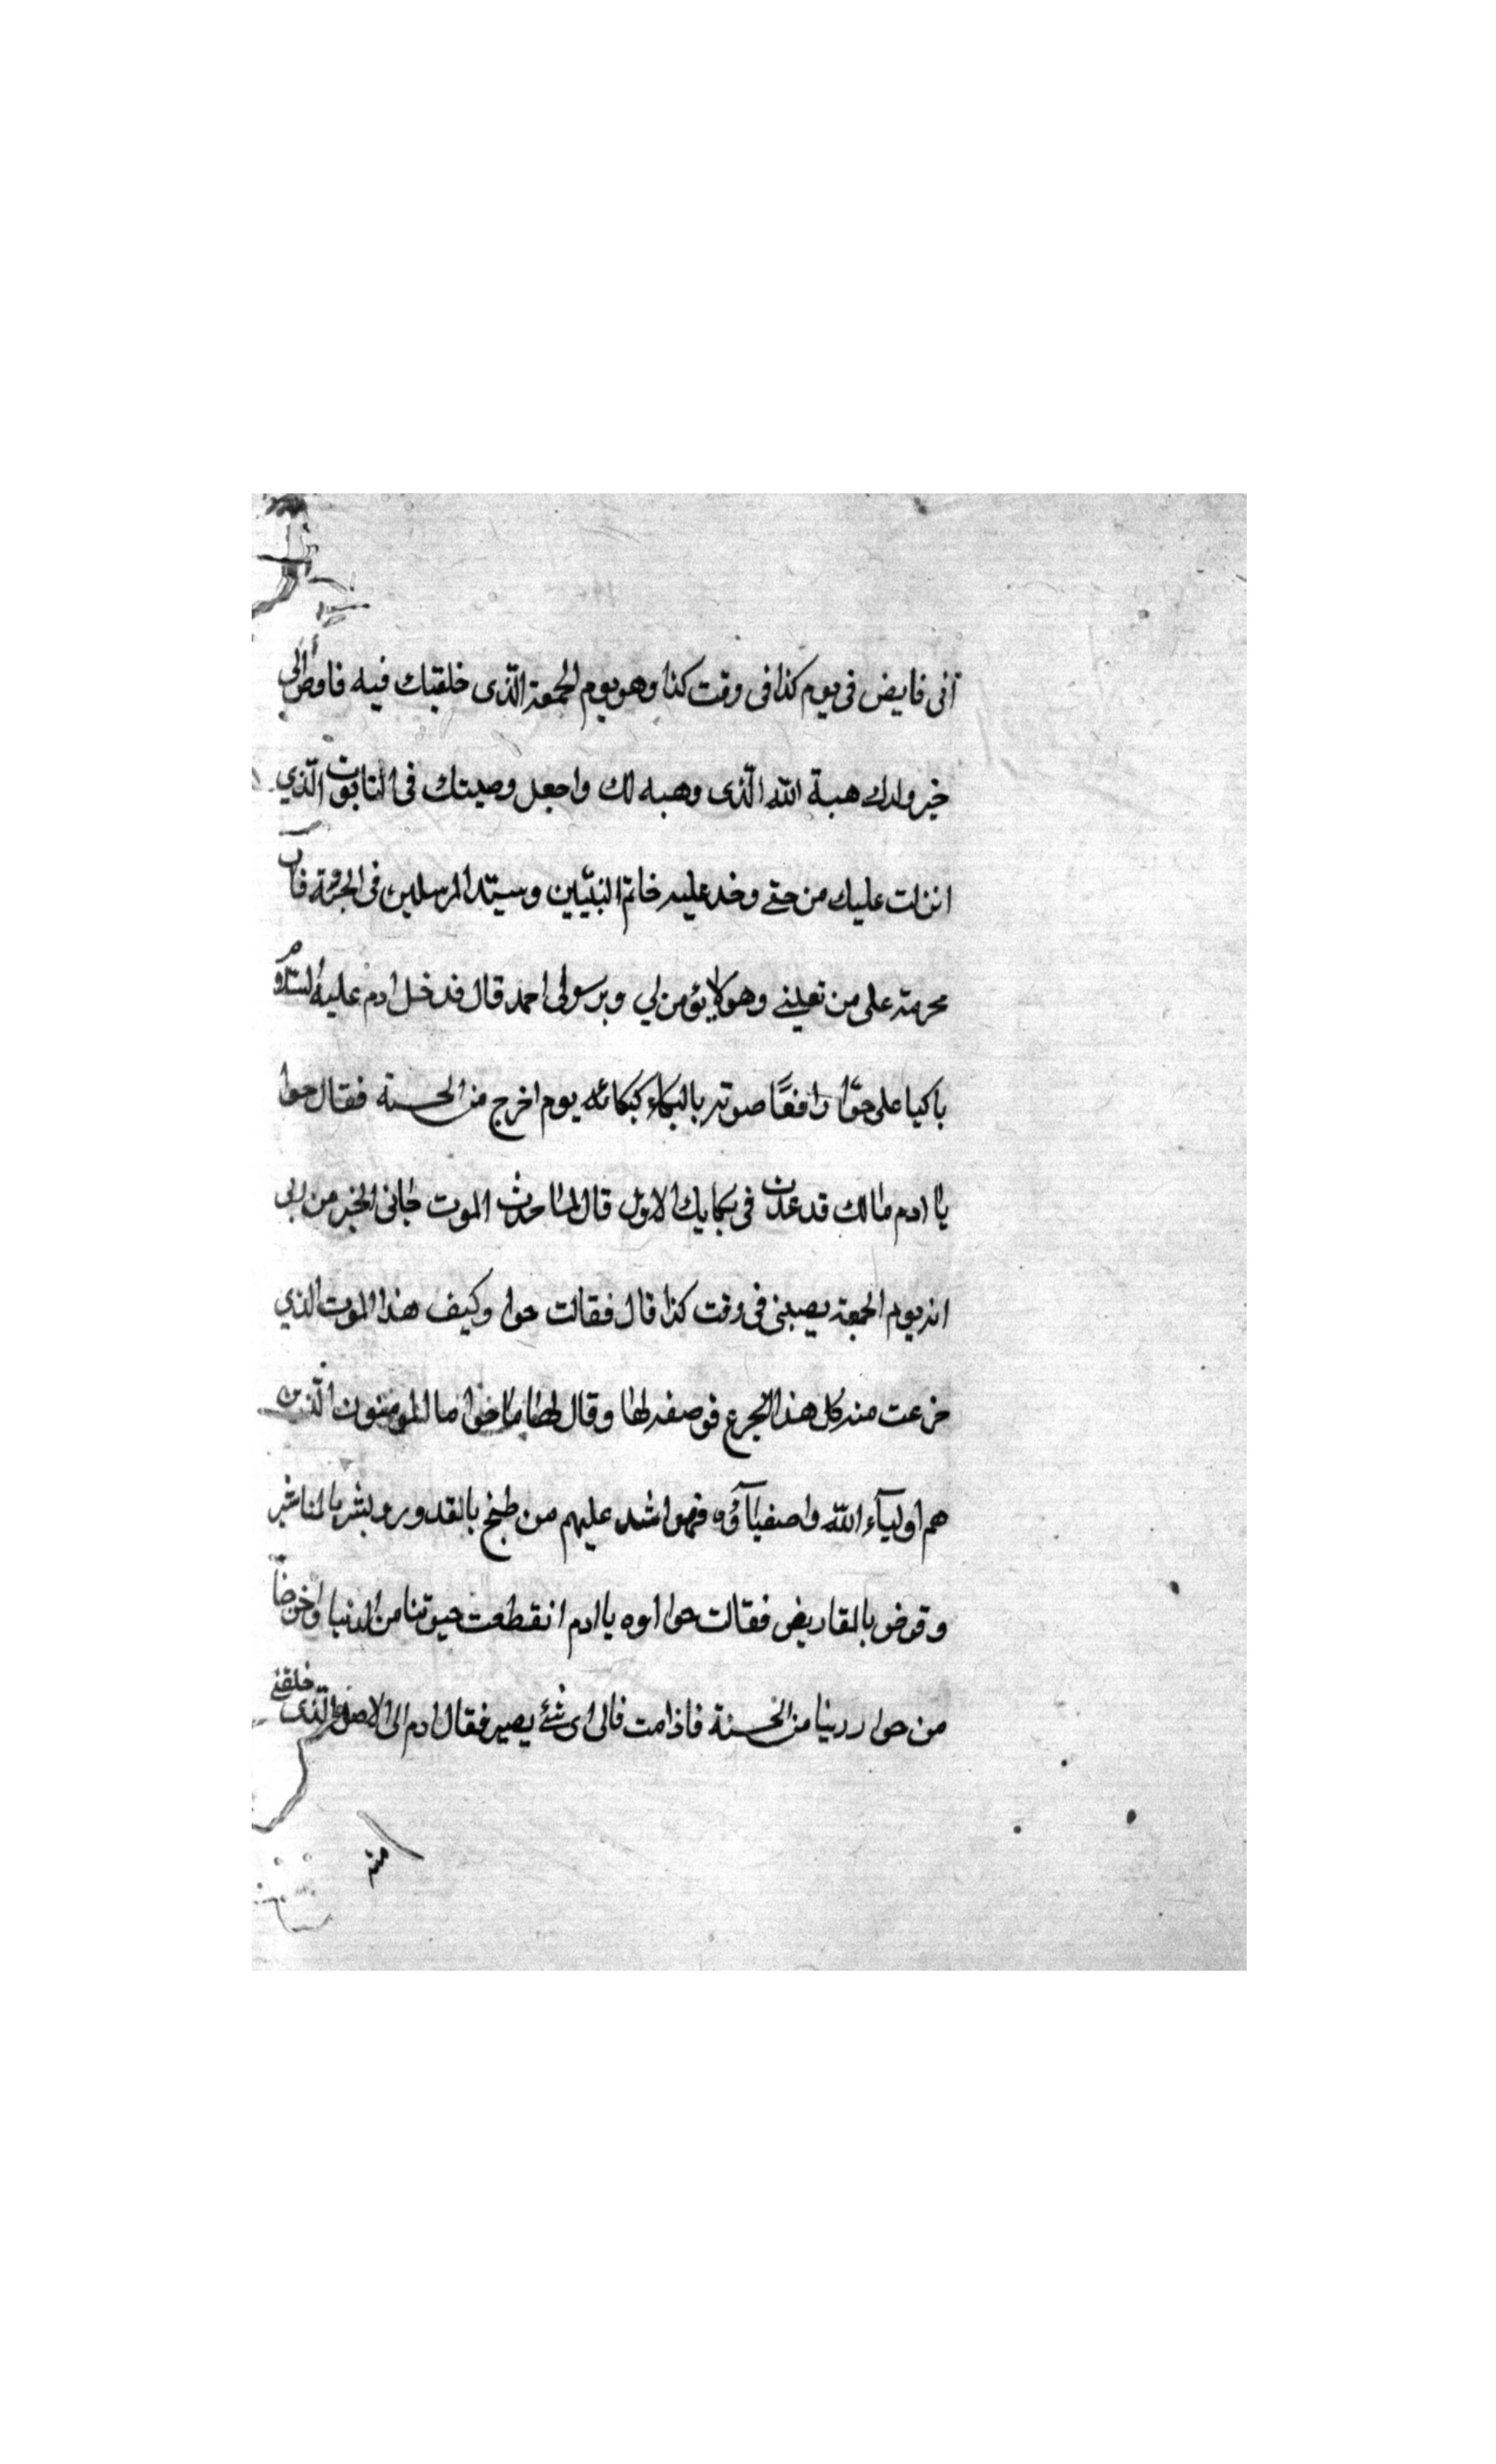 انى فايض فى يوم كذا فى وقت كذا وهو يوم الجمعة الّذى خلقتك فيه فاوص الى
خير ولدك هبة الله الّذى وهبه لك واجعل وصيتك فى التابوت الّذي
انزلت عليك من حتے وخد عليه خاتم النبيّين وسيّد المرسلين فى الجنّة فان
محرمة على من وهو لا يؤمن لي وبرسولى احمد قال فدخل ادم عليه السلام
باكيا على حوّا رافعًا صوته بالبكاء كبكائه يوم اخرج من الجنة فقال حوا
يا ادم مالك قد عدت فى بكايك الاول قال لما حدث الموت جانى الخبر من ربى
انه يوم الجمعة يصبنى فى وقت كذا قال فقالت حوا وكيف هذا الموت الذي
خرعت منه كل هذا الجرع فوصفه لها وقال لها يا حوا ما المومنون الّذين
هم اوليآء الله واصفيآؤه فهوا شد عليهم من طبخ بالقدور ونشر بالمناشير
وقرض بالمقاريض فقالت حوا اوه يا ادم انقطعت حيوتنا من الدنيا واخرضا
من حوار ربنا من الجنة فاذا مت فالى اى شئ يصير فقال ادم الى الاصل الّذى خلقنے
منه